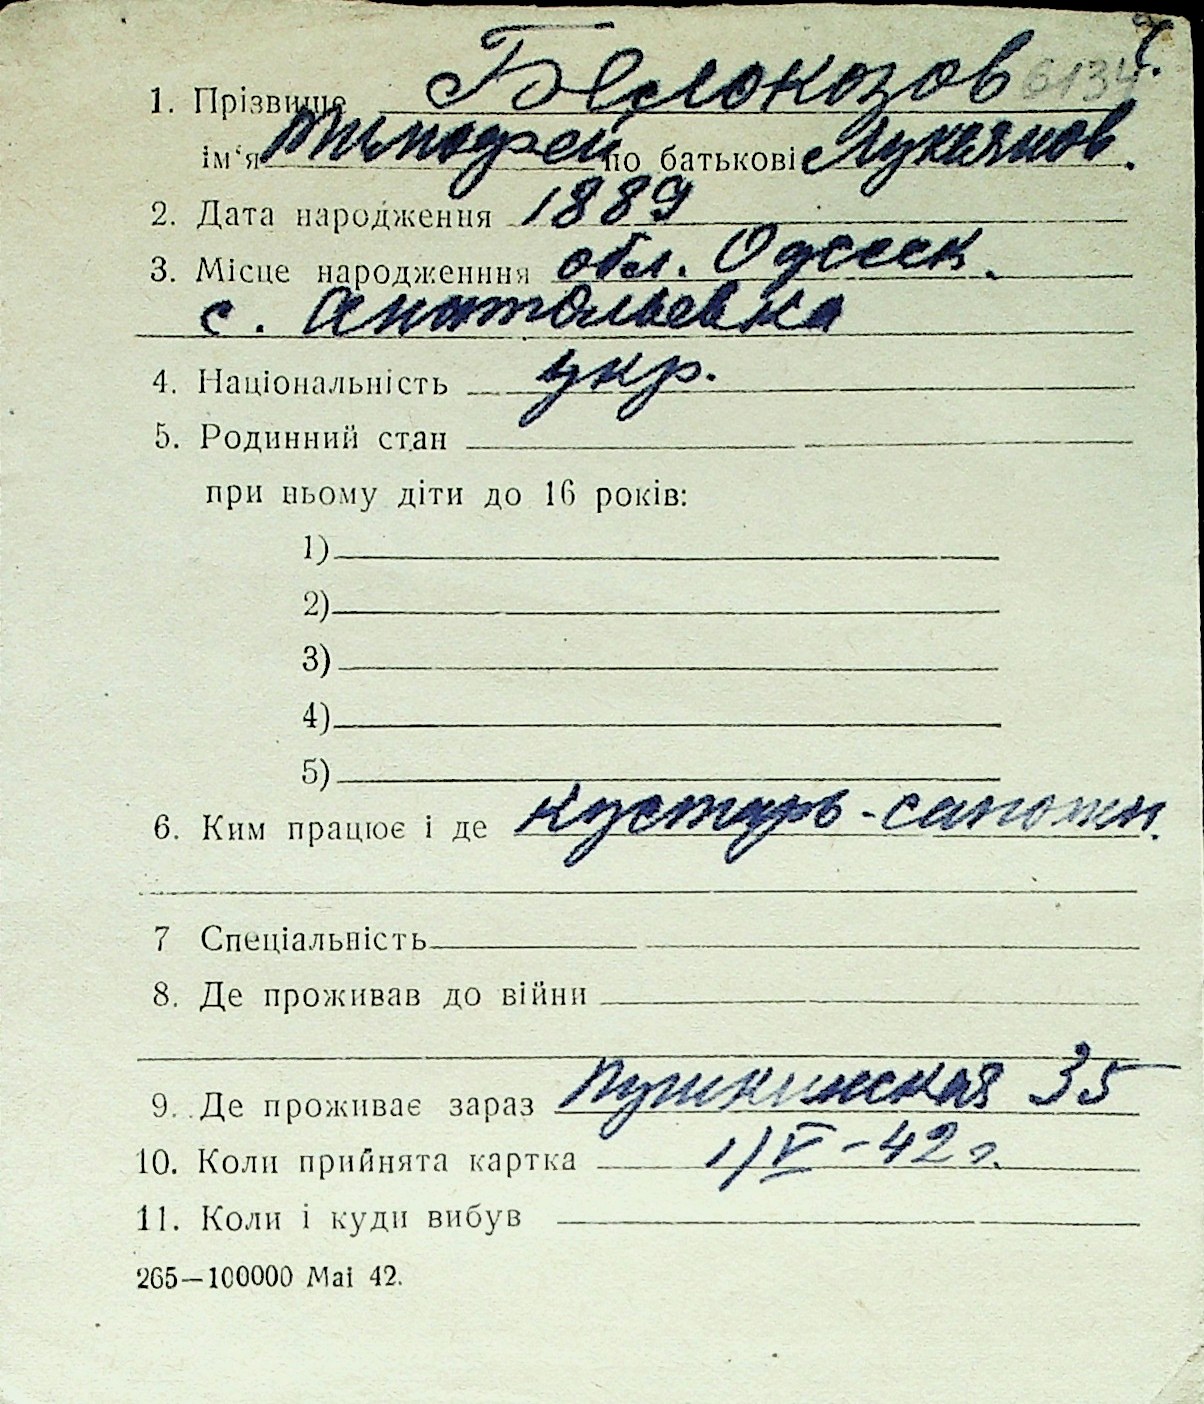 Ч.
1. Прізвище Белокозов 6134
ім‘я Тимофей по батькові Лукьянов.
2. Дата народження 1889
3. Місце народженння обл. Одесск.
с. Анатольевка
4. Національність укр.
5. Родинний стан
при ньому діти до 16 років:
1)
2)
3)
4)
5)
6. Ким працює і де кустарь-сапожн.
7 Спеціальність
8. Де проживав до війни
9. Де проживає зараз Пушкинская 35
10. Коли прийнята картка 1/V-42 г.
11. Коли і куди вибув
265—100000 Mai 42.